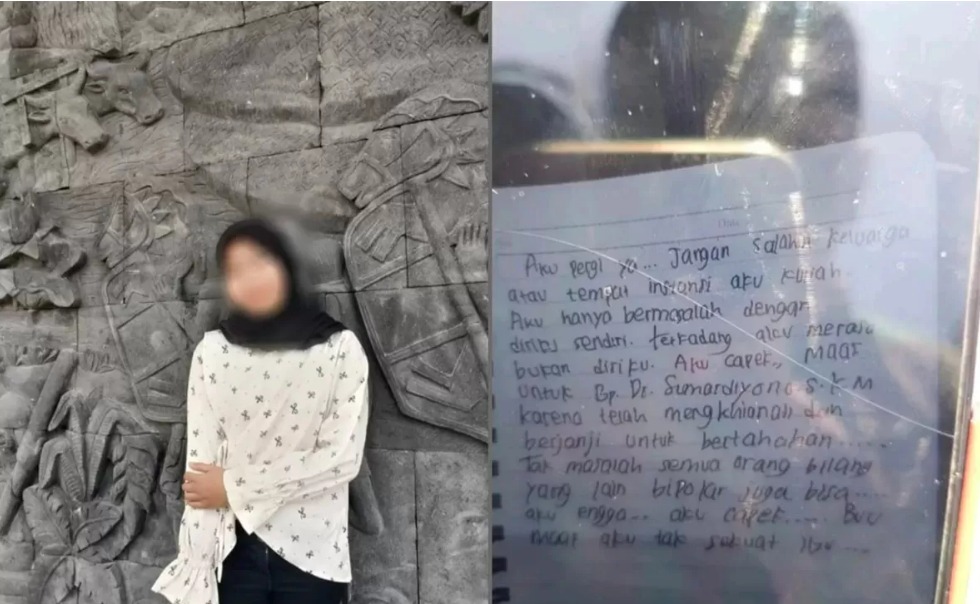 Aku pergi ya... Jangan Salahin keluarga
atau tempat instansi aku kuliah.
Aku hanya bermasalah dengan
diriku sendiri. terkadang aku merasa
bukan diriku. Aku capek., Maaf
untuk Bp. Dr. Sumardiyono S.K.M
karena telah mengkhianati dan
berjanji untuk bertahahan.....
Tak masalah semua orang bilang
yang lain bipolar juga bisa....
aku engga... aku capek..... Buu
maaf aku tak sekuat ibu....